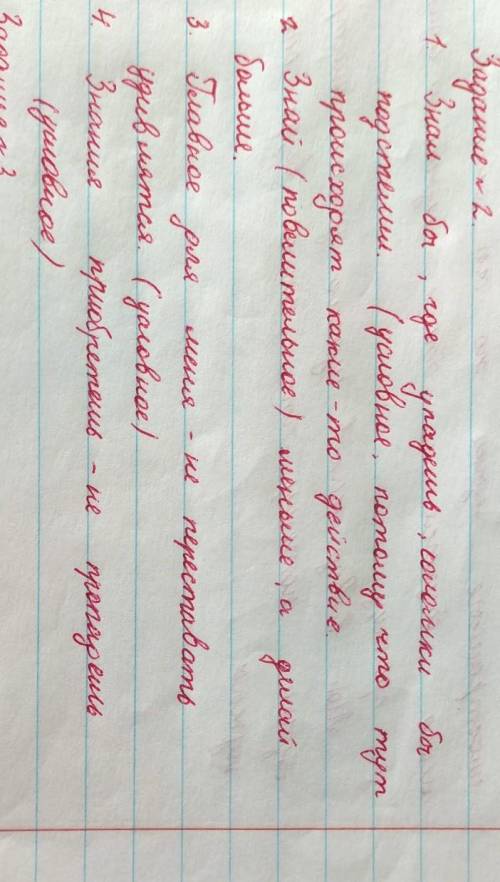 Задание № 2.
1. Знал бы, где упадешь, соломки бы
подстелил. (условное, потому что тут
происходят какие-то действие.
2. Знай (повелительное) меньше, а делай
больше.
3. Главное для меня - не переставать
удивлятся. (условное)
4. Знания приобретешь - не пропадешь
(условное)
Задание № 3